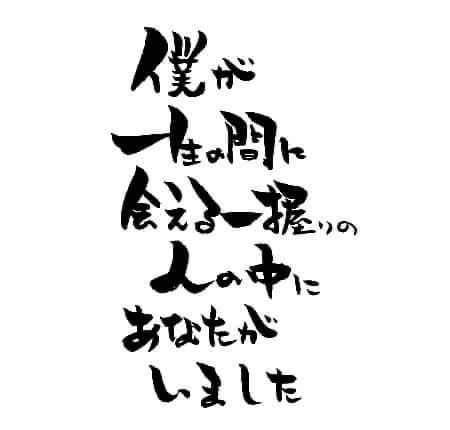 僕が
一生の間に
会える一握りの
人の中に
あなたが
いました